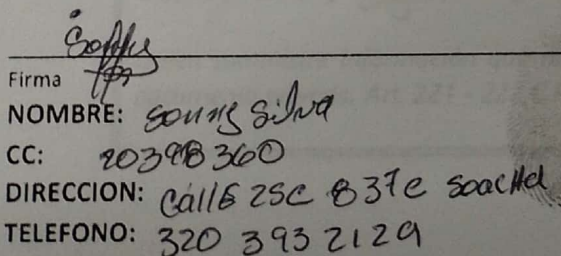 Firma
NOMBRE: sonny Silva
CC: 20398360
DIRECCION: CallE 25C 837e SoacHa
TELEFONO: 320 393 2129